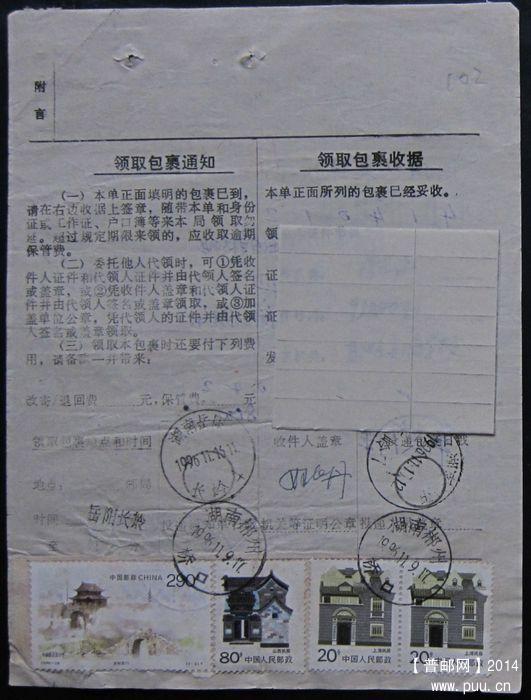 102
附
言
领取包裹通知
(一)本单正面填明的包裹已到,
请在右边收据上签章,随带本单和身份
证或工作证、户口簿等来本局领取勿
延。超过规定期限来领的,应收取逾期
保管费。
(二)委托他人代领时,可①凭收
件人证件和代领人证件并由代领人签名
或盖章,或②凭收件人盖章和代领人证
件并由代领人签名或盖章领取,或③加
盖单位公章,凭代领人的证件并由代领
人签名或盖章领取。
(三)领取本包裹时还要付下列费
用,请备款一并带来:
改寄/退回费 元,保管费 元
领取包裹地点和时间
地点: 邮局
时间
岳阳长岭
领取包裹收据
本单正面所列的包裹已经妥收。
领
证
证
发
收件人盖章
机关等证明公章
湖南岳阳
1996.11.16.11
湖南郴州
1996.11.9.17
1996.11.12
湖南郴州
1996.11.9.17
中国邮政 CHINA
290分
山西民居
80分 中国人民邮政
上海民居
20分 中国人民邮政
上海民居
20分 中国人民邮政
【普邮网】2014
www.puu.cn